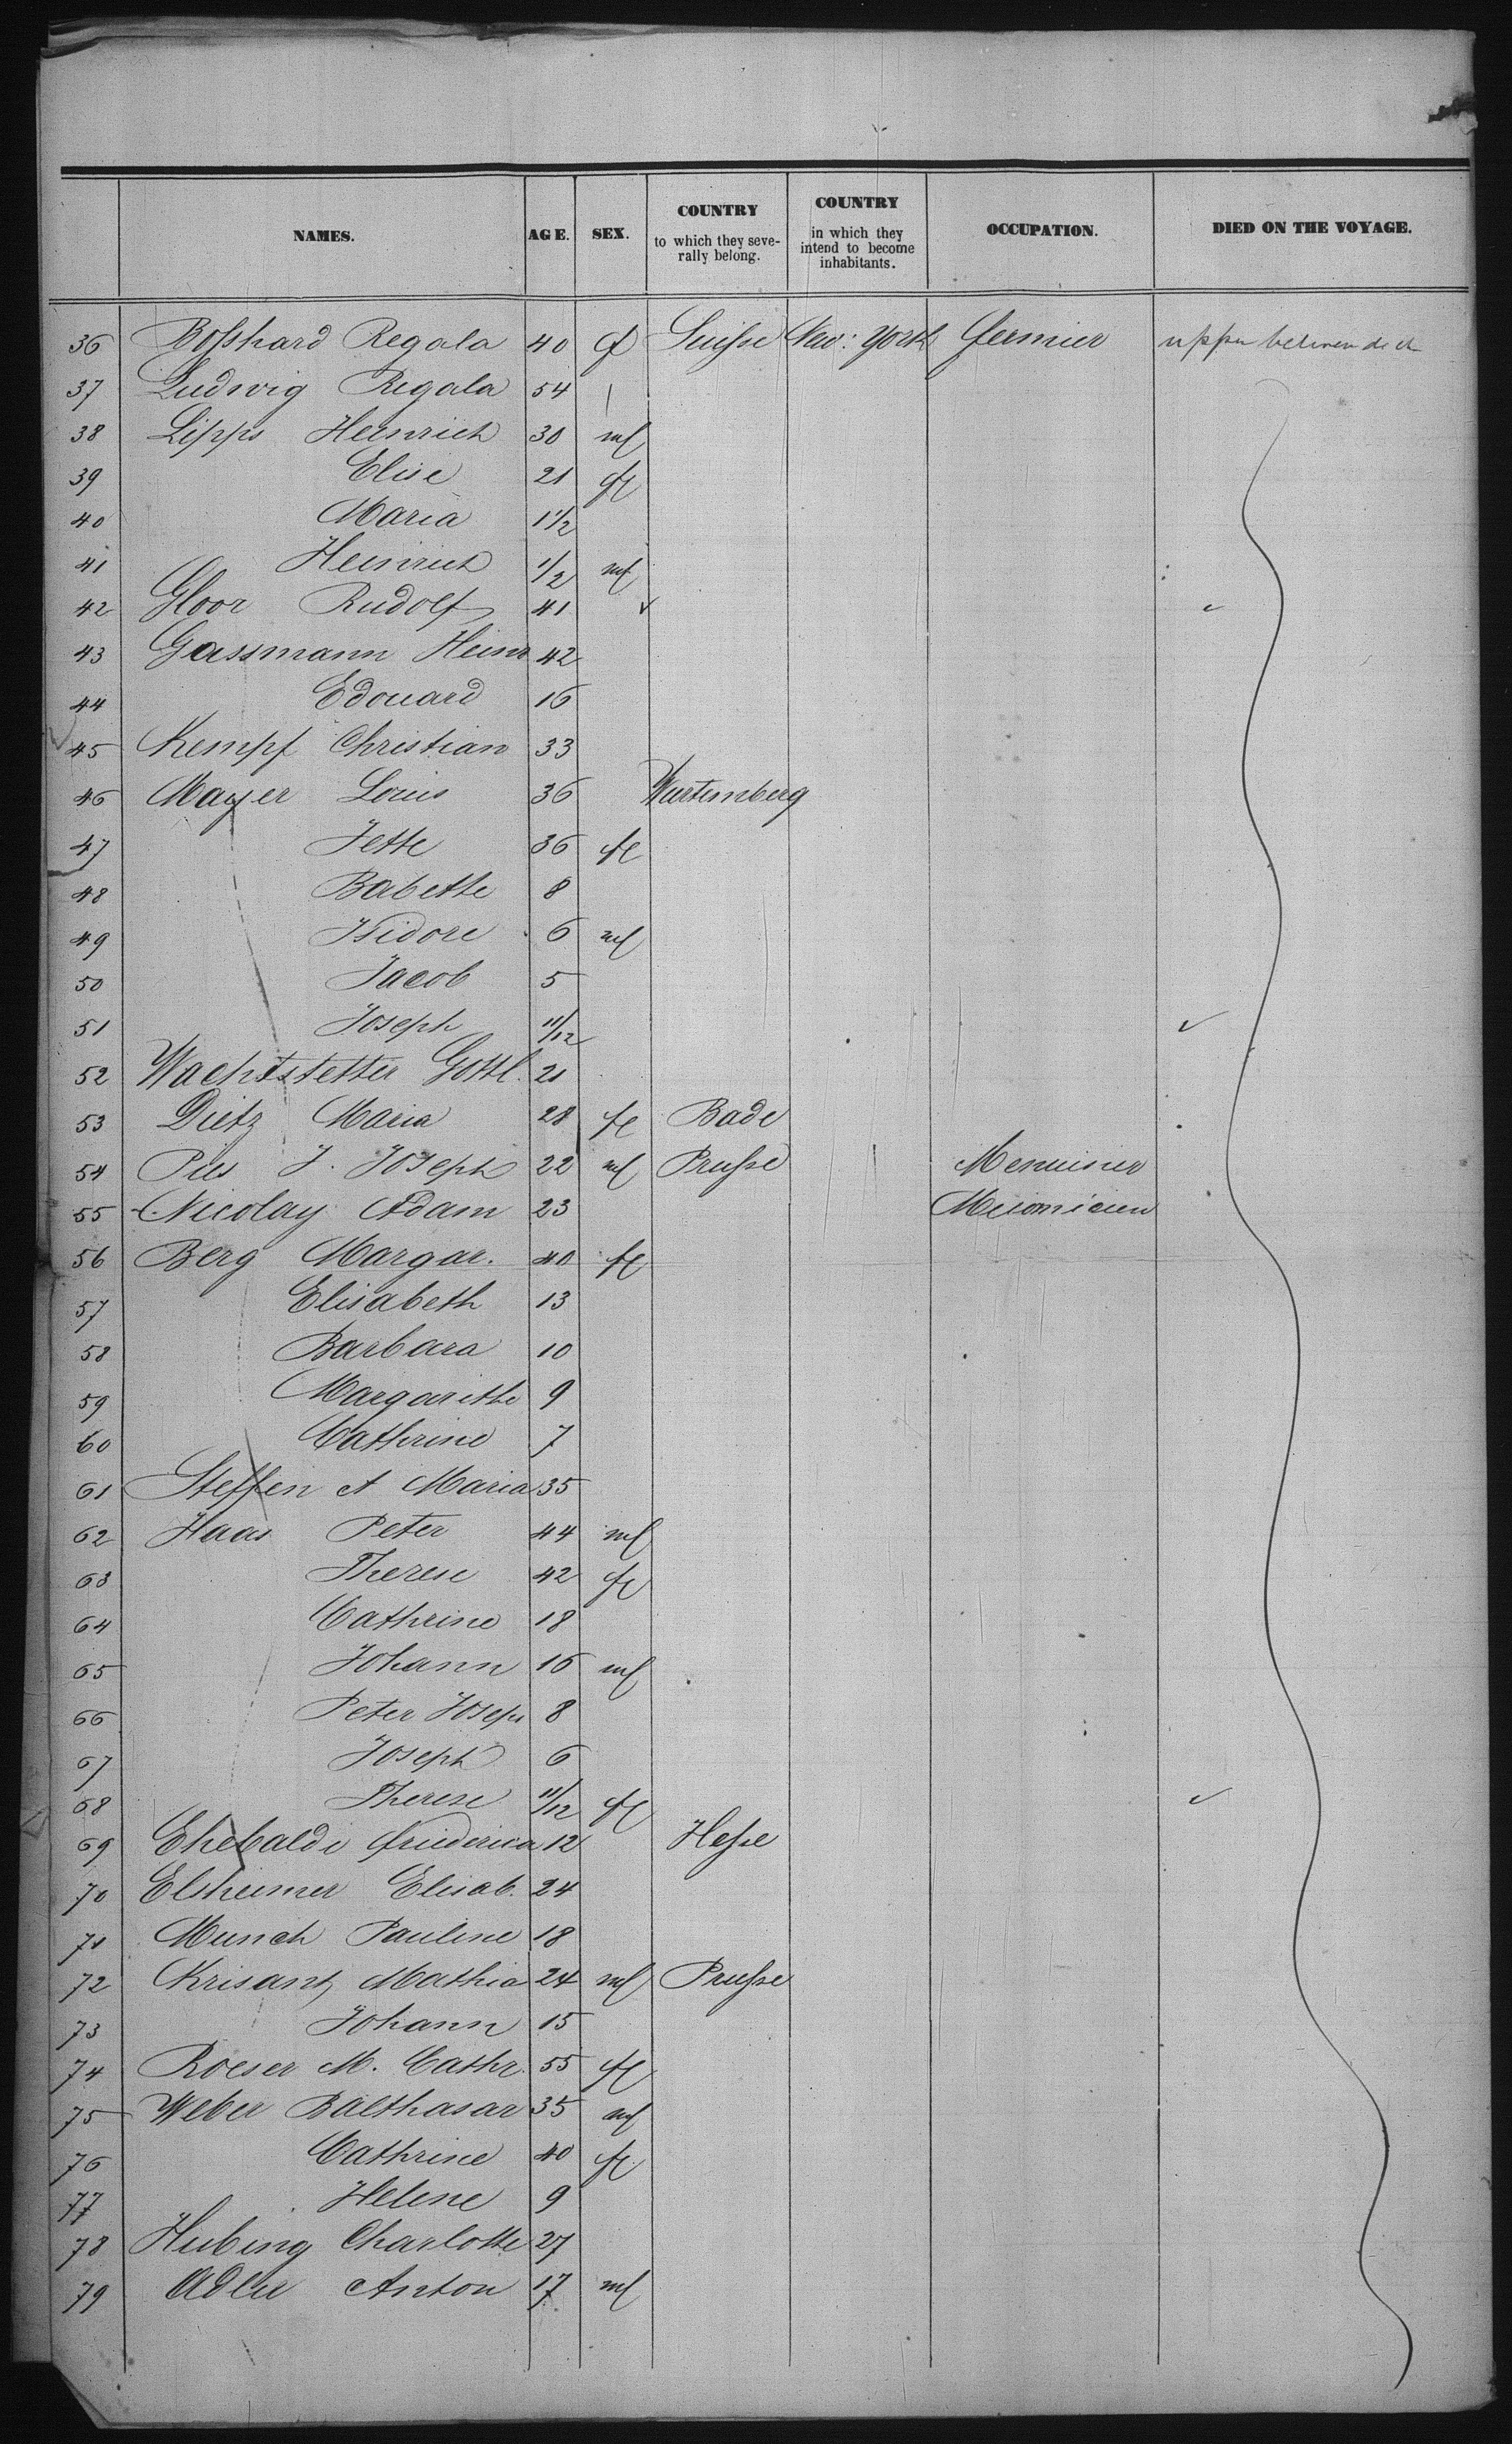 NAMES. AGE. SEX. COUNTRY to which they severally belong. COUNTRY in which they intend to become inhabitants. OCCUPATION. DIED ON THE VOYAGE.
36 Boſshard Regala 40 f Suiſse New: York fermier upper between deck
37 Ludwig Regala 54
38 Lipps Heinrich 30 ml
39 Elise 21 fe
40 Maria 1 1/2
41 Heinrich 1/2 ml
42 Gloor Rudolf 41
43 Gassmann Heinr 42
44 Edouard 16
45 Kempf Christian 33
46 Mayer Louis 36 Wurtemberg
47 Jette 36 fe
48 Babette 8
49 Isidore 6 ml
50 Jacob 5
51 Joseph 11/12
52 Wachtstetter Gottl. 21
53 Dietz Maria 28 fe Bade
54 Pies J. Joseph 22 ml Pruſse Menuisier
55 Nicolay Adam 23
56 Berg Margar. 40 fe
57 Elisabeth 13
58 Barbara 10
59 Margarethe 9
60 Cathrine 7
61 Steffen A Maria 35
62 Haas Peter 44 ml
63 Therese 42 fe
64 Cathrine 18
65 Johann 16 ml
66 Peter Joseph 8
67 Joseph 6
68 Therese 11/12 fe
69 Ehebaldi Friederica 12 Heſse
70 Elsheimer Elisab. 24
71 Munch Pauline 18
72 Krisant Mathia 24 ml Pruſse
73 Johann 15
74 Roeser M. Cathr. 55 fe
75 Weber Balthasar 35 ml
76 Cathrine 40 fe
77 Helene 9
78 Hubing Charlotte 27
79 Adler Anton 17 ml